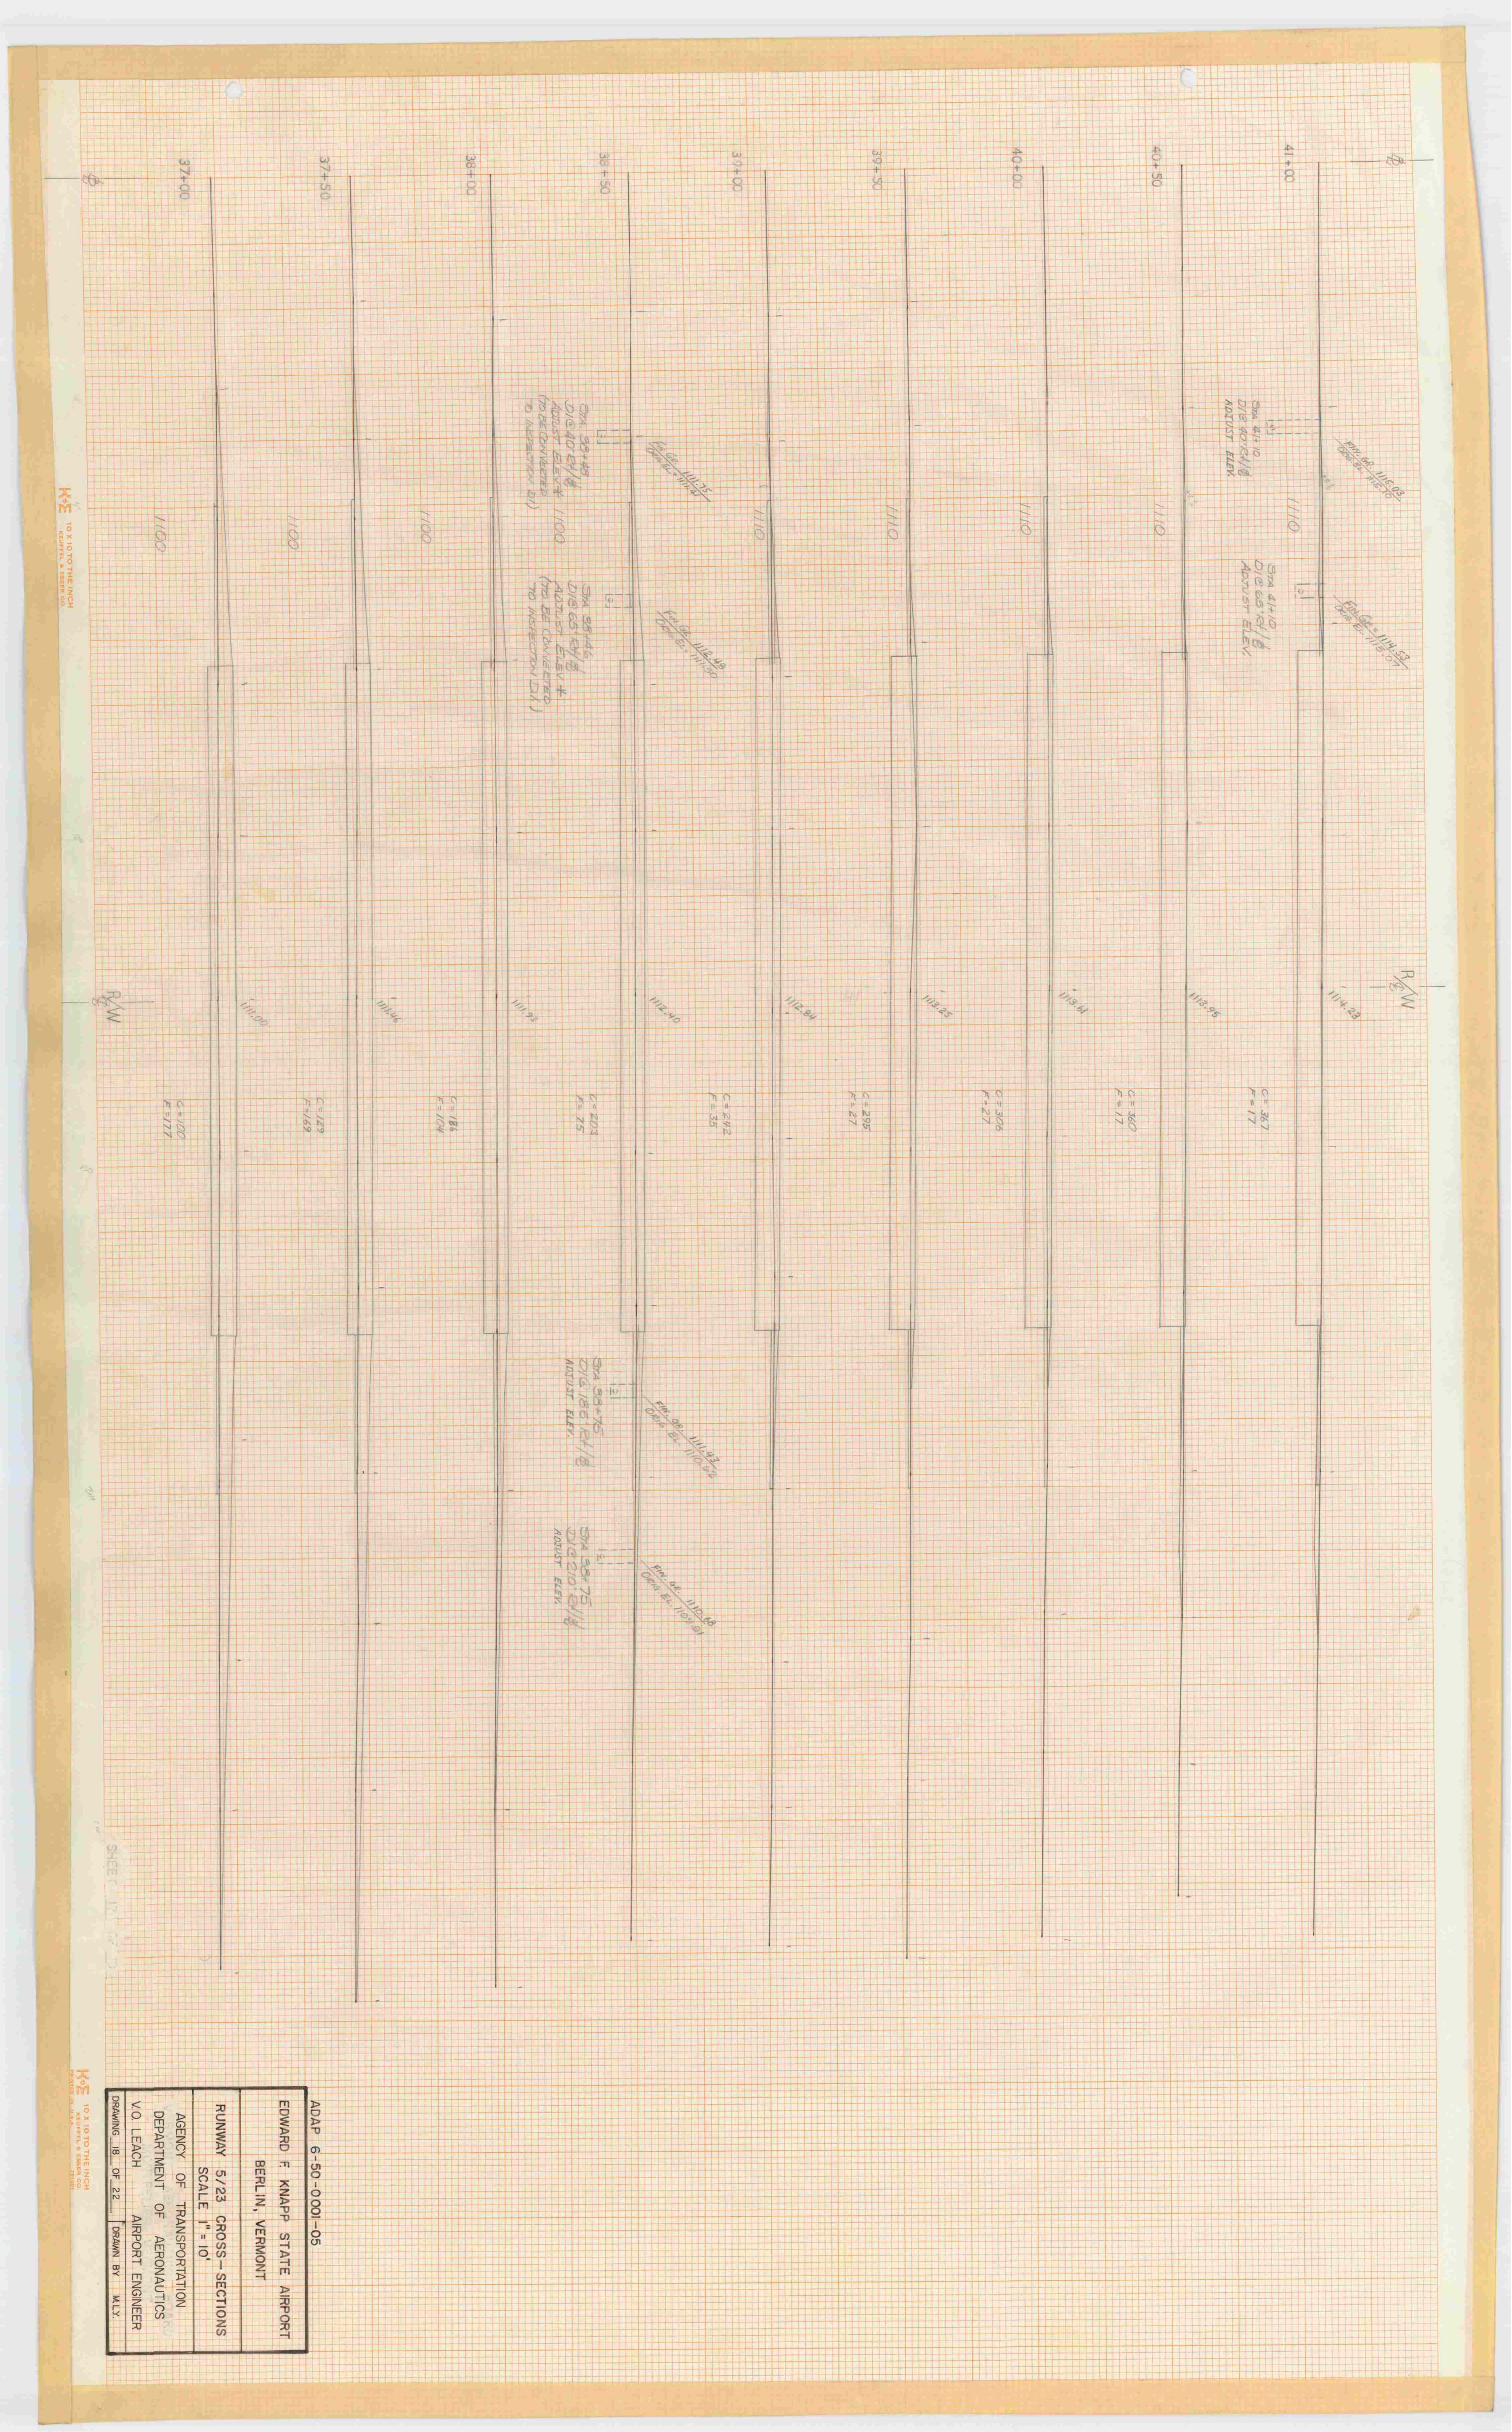 ADAP 6-50-0001-05
EDWARD F. KNAPP STATE AIRPORT
BERLIN, VERMONT
RUNWAY 5/23 CROSS-SECTIONS
SCALE 1" = 10'
AGENCY OF TRANSPORTATION
DEPARTMENT OF AERONAUTICS
V.O. LEACH AIRPORT ENGINEER
DRAWING 18 OF 22 DRAWN BY M.L.Y.
41+00
1110
STA 41+10
DI@40'Rt/℄
ADJUST ELEV.
FIN. GR. 1115.03
STA 41+10
DI@65'Rt/℄
ADJUST ELEV.
FIN. GR. = 1114.53
ORIG EL. 1115.07
R/W
℄
1114.23
C = 367
F = 17
40+50
1110
1113.95
C = 360
F = 17
40+00
1110
1113.61
C = 306
F = 27
39+50
1110
1113.25
C = 295
F = 27
39+00
1110
1112.84
C = 242
F = 35
38+50
STA 38+48
DI@40'Rt/℄
ADJUST ELEV &
(TO BE CONVERTED
TO INSPECTION DI)
1100
FIN. GR. 1111.75
STA 38+46
DI@65'Rt/℄
ADJUST ELEV &
(TO BE CONVERTED
TO INSPECTION DI)
FIN. GR. 1112.48
1112.40
C = 203
F = 75
STA 38+75
DI@186'Rt/℄
ADJUST ELEV.
FIN. GR. 1111.43
ORIG EL. 1110.62
STA 38+75
DI@210'Rt/℄
ADJUST ELEV.
FIN. GR. 1110.68
ORIG EL. 1109.91
38+00
1100
1111.93
C = 186
F = 104
37+50
1100
1111.46
C = 129
F = 169
37+00
1100
1111.00
C = 100
F = 177
R/W
℄
K+E 10 X 10 TO THE INCH
KEUFFEL & ESSER CO.
K+E 10 X 10 TO THE INCH
KEUFFEL & ESSER CO.